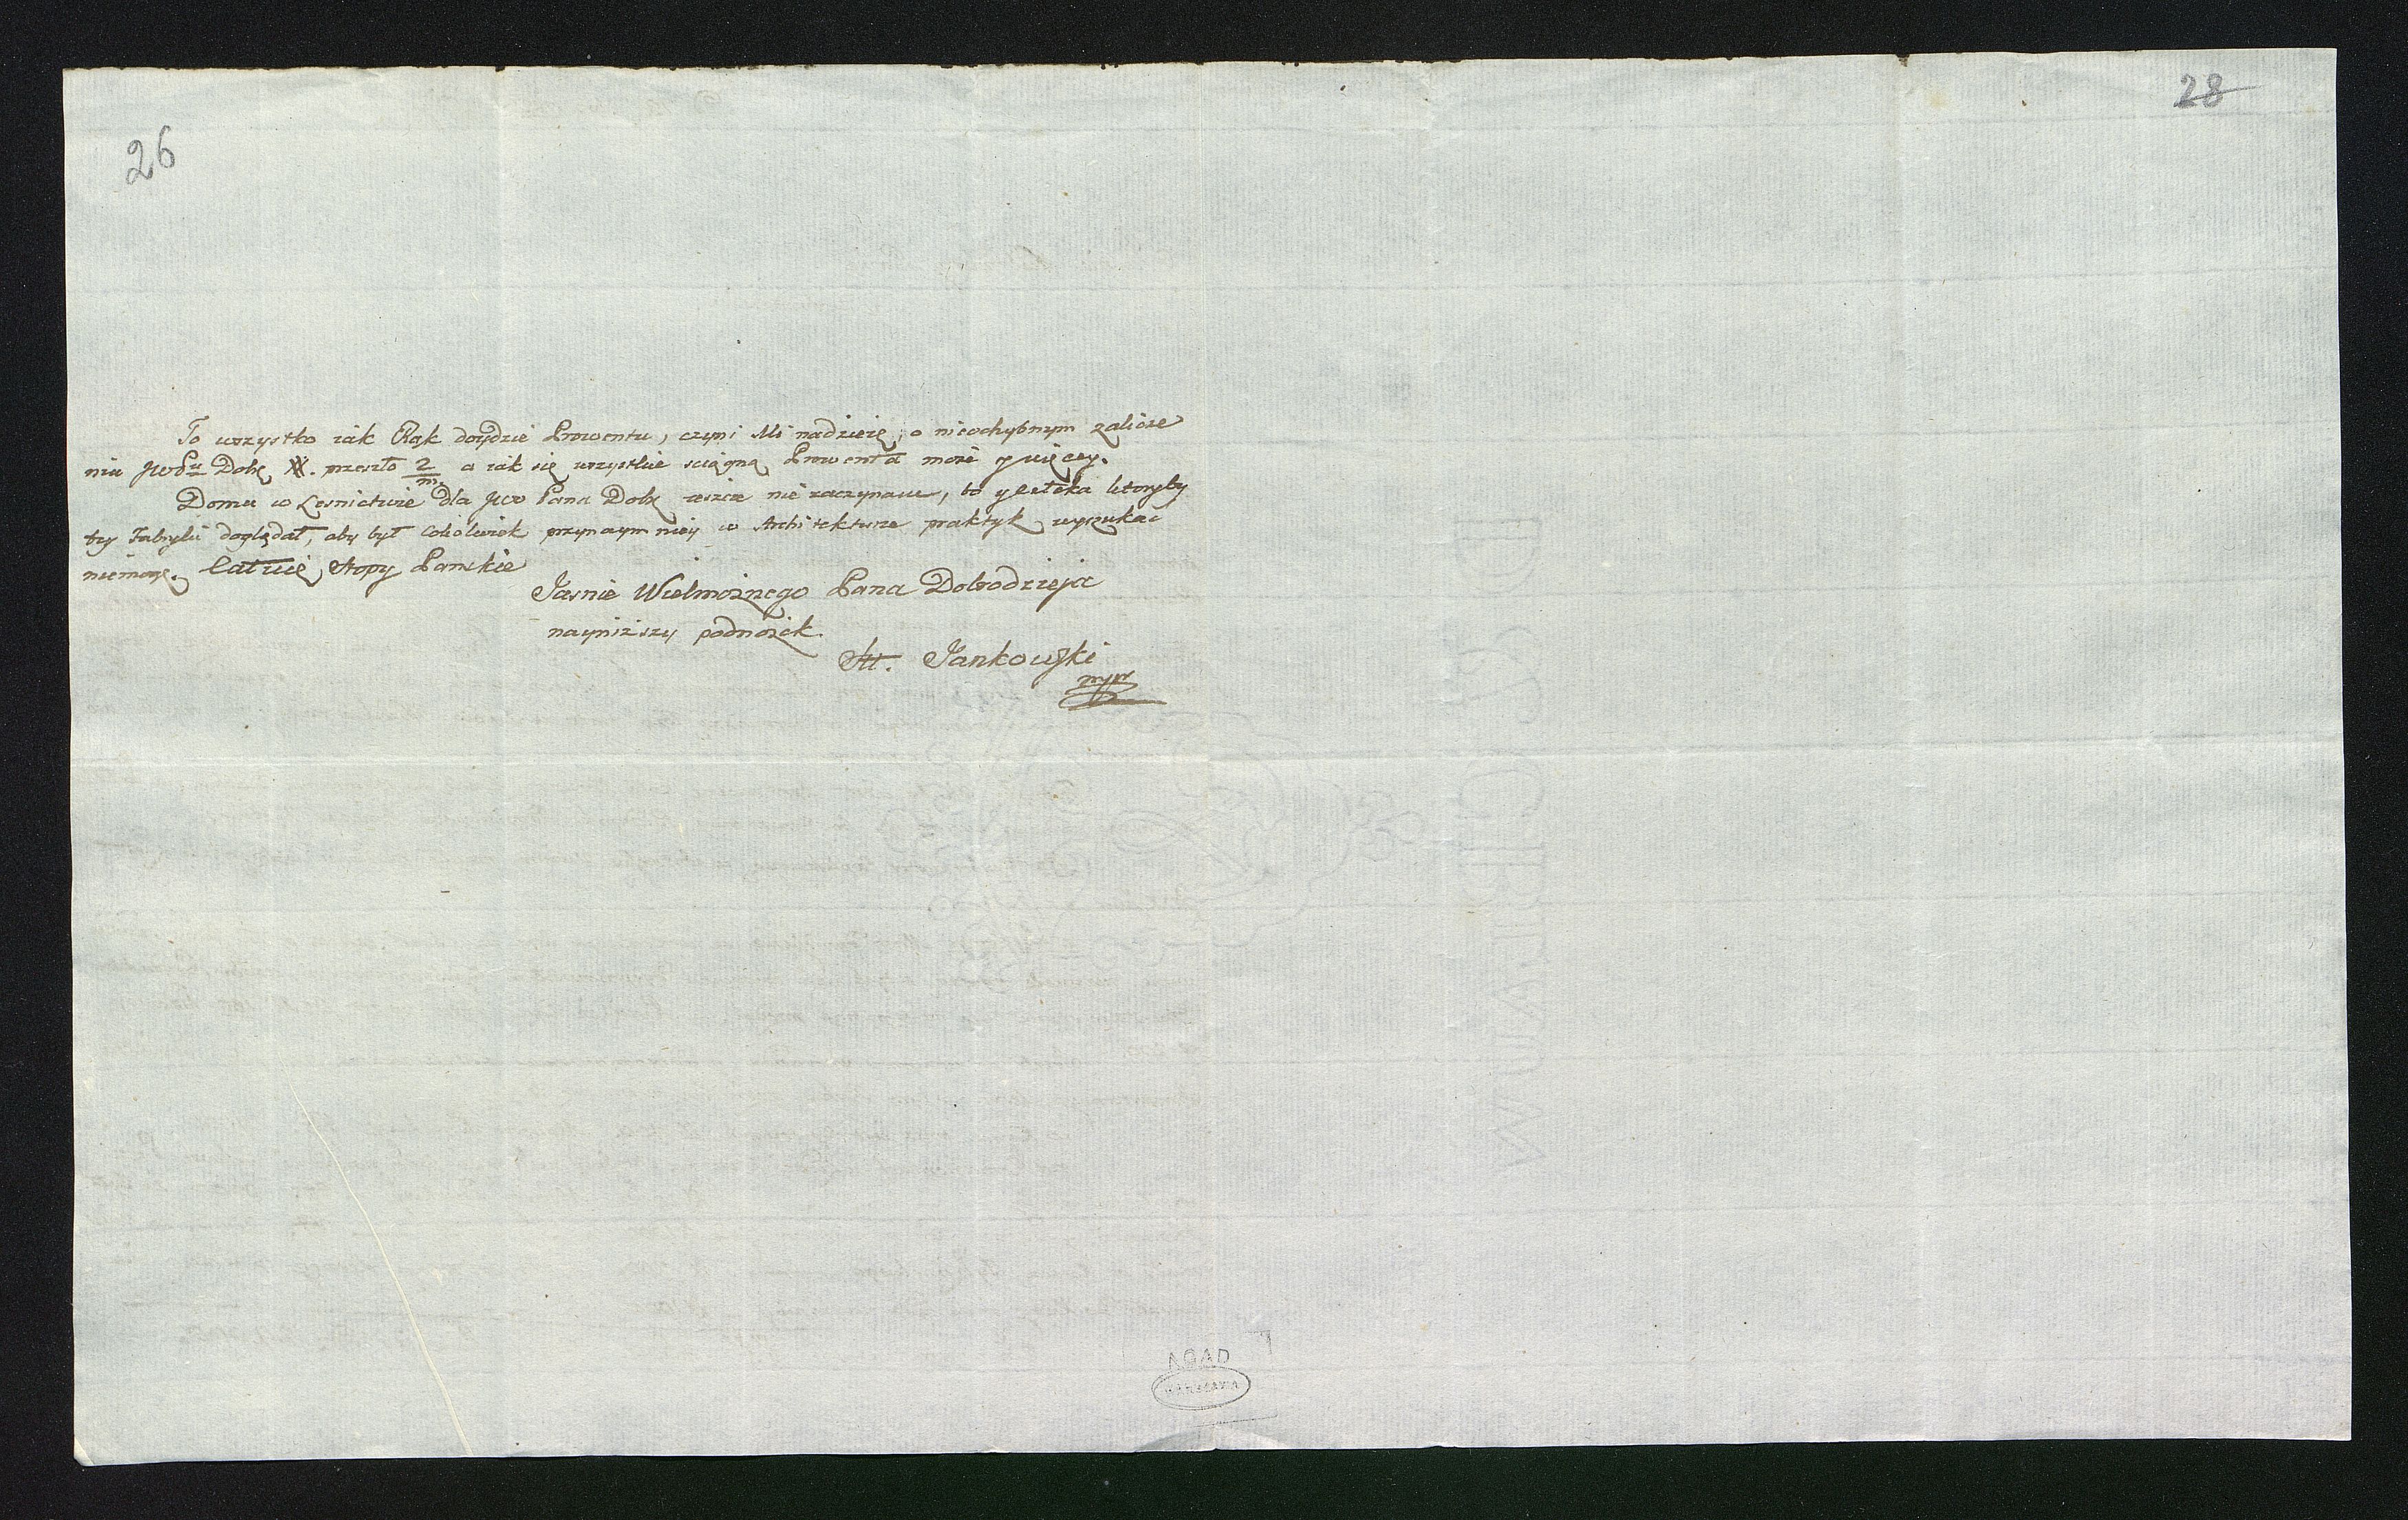 26
28
To wszystko iak Rąk doydzie Prowentu, czyni Mi nadzieię, o nieochybnym zalicze
niu JWPu Dobę XX. przeszło 2/m. a iak się wszystkie sciągną Prowenta może y więcey.
Domu w Lesnictwie dla JW Pana Dobę ieszcze nie zaczynam, bo y człeka ktoryby
tey Fabryki doglądał, aby był Cokolwiek przynaymniey w Architekturze praktyk wyszukać
niemogę. Całuię Stopy Panskie
Jasnie Wielmożnego Pana Dobrodzieja
nayniższy podnożek.
Jankowski
mpr
AGAD
WARSZAWA